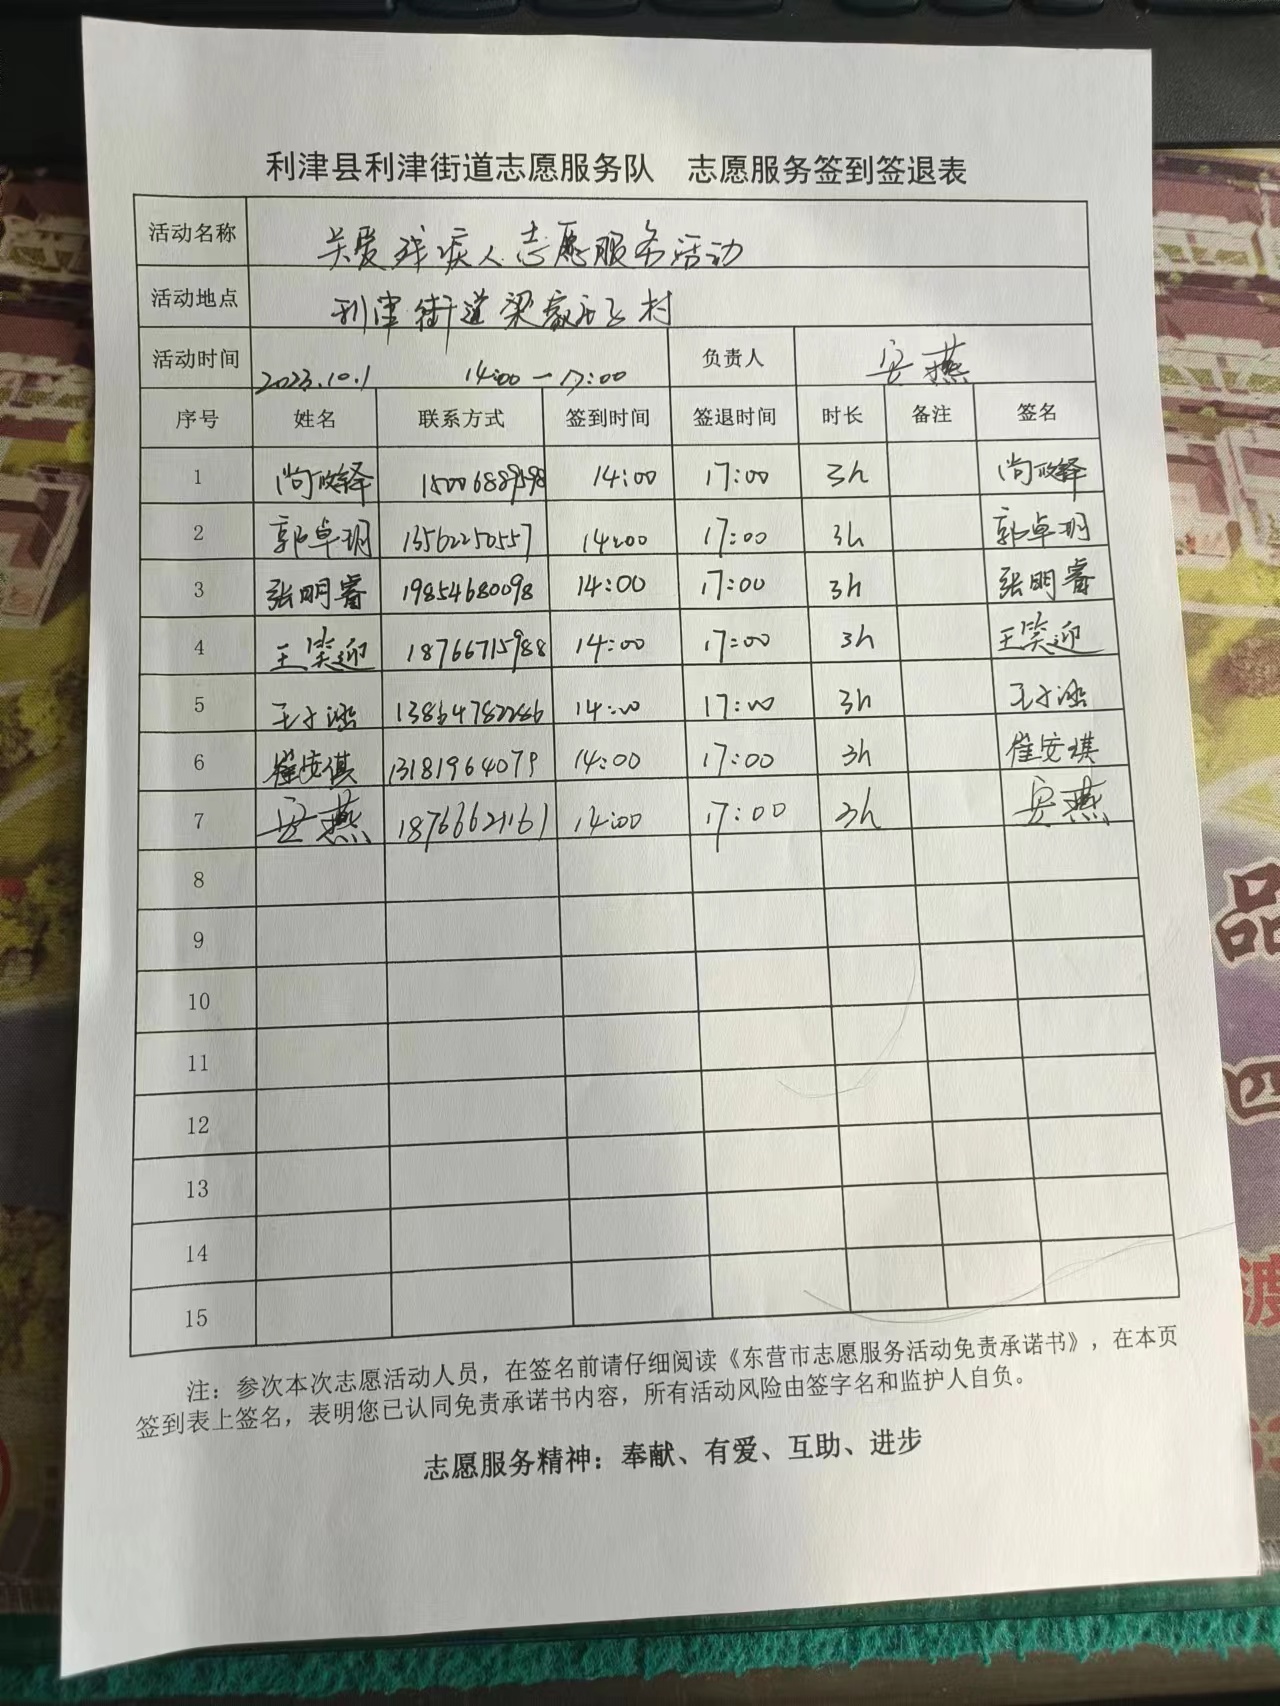 利津县利津街道志愿服务队 志愿服务签到签退表
活动名称 关爱残疾人志愿服务活动
活动地点 利津街道梁家庄子村
活动时间 2023.10.1 14:00—17:00 负责人 安燕
序号 姓名 联系方式 签到时间 签退时间 时长 备注 签名
1 尚政铎 14:00 17:00 3h 尚政铎
2 郭卓玥 13562250557 14:00 17:00 3h 郭卓玥
3 张明睿 19854680098 14:00 17:00 3h 张明睿
4 王笑迎 18766715988 14:00 17:00 3h 王笑迎
5 王子涵 14:00 17:00 3h 王子涵
6 崔安琪 13181964079 14:00 17:00 3h 崔安琪
7 安燕 18766621161 14:00 17:00 3h 安燕
8
9
10
11
12
13
14
15
注：参次本次志愿活动人员，在签名前请仔细阅读《东营市志愿服务活动免责承诺书》，在本页
签到表上签名，表明您已认同免责承诺书内容，所有活动风险由签字名和监护人自负。
志愿服务精神：奉献、有爱、互助、进步
品
四
渡